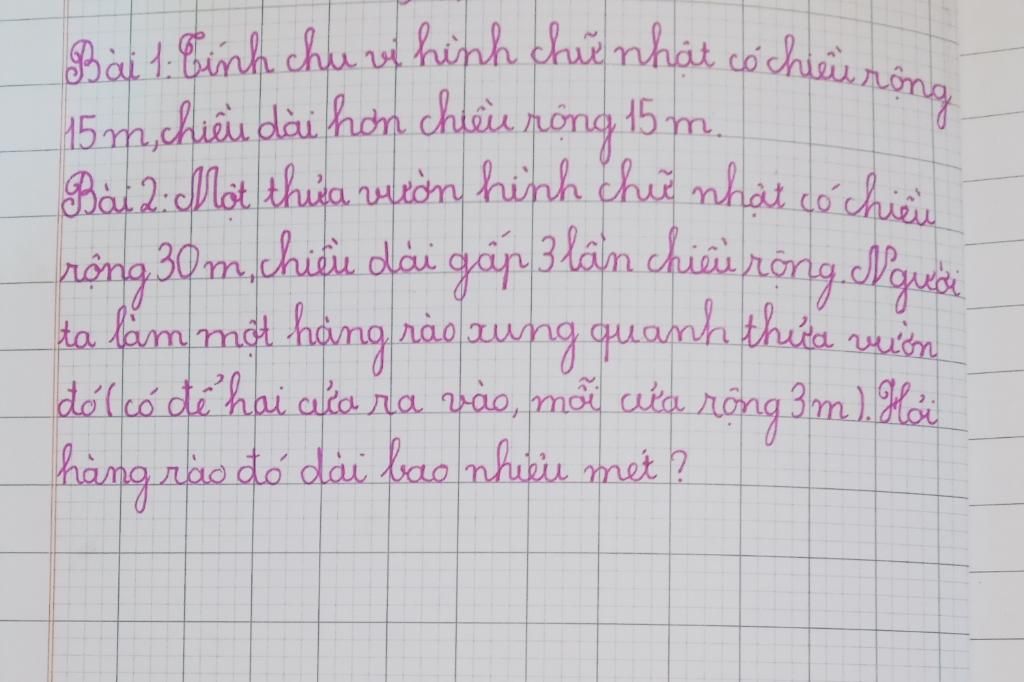 Bài 1: Tính chu vi hình chữ nhật có chiều rộng
15 m, chiều dài hơn chiều rộng 15 m.
Bài 2: Một thửa vườn hình chữ nhật có chiều
rộng 30 m, chiều dài gấp 3 lần chiều rộng. Người
ta làm một hàng rào xung quanh thửa vườn
đó (có để hai cửa ra vào, mỗi cửa rộng 3 m). Hỏi
hàng rào đó dài bao nhiêu mét?